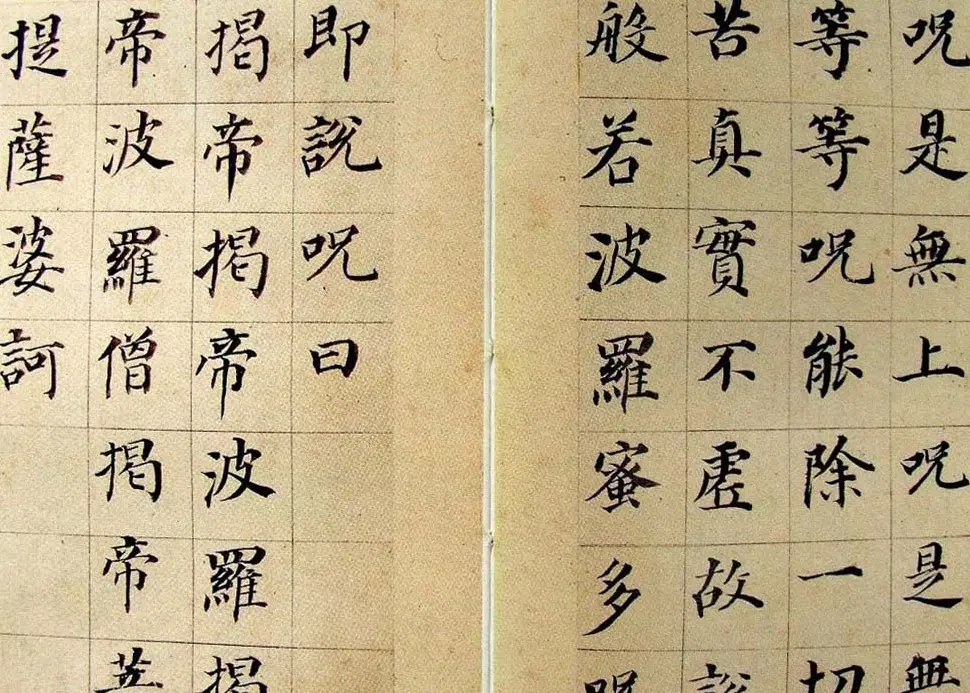 呪是無上呪是無
等等呪能除一切
苦真實不虛故說
般若波羅蜜多呪
即說呪曰
揭帝揭帝波羅揭
帝波羅僧揭帝菩
提薩婆訶